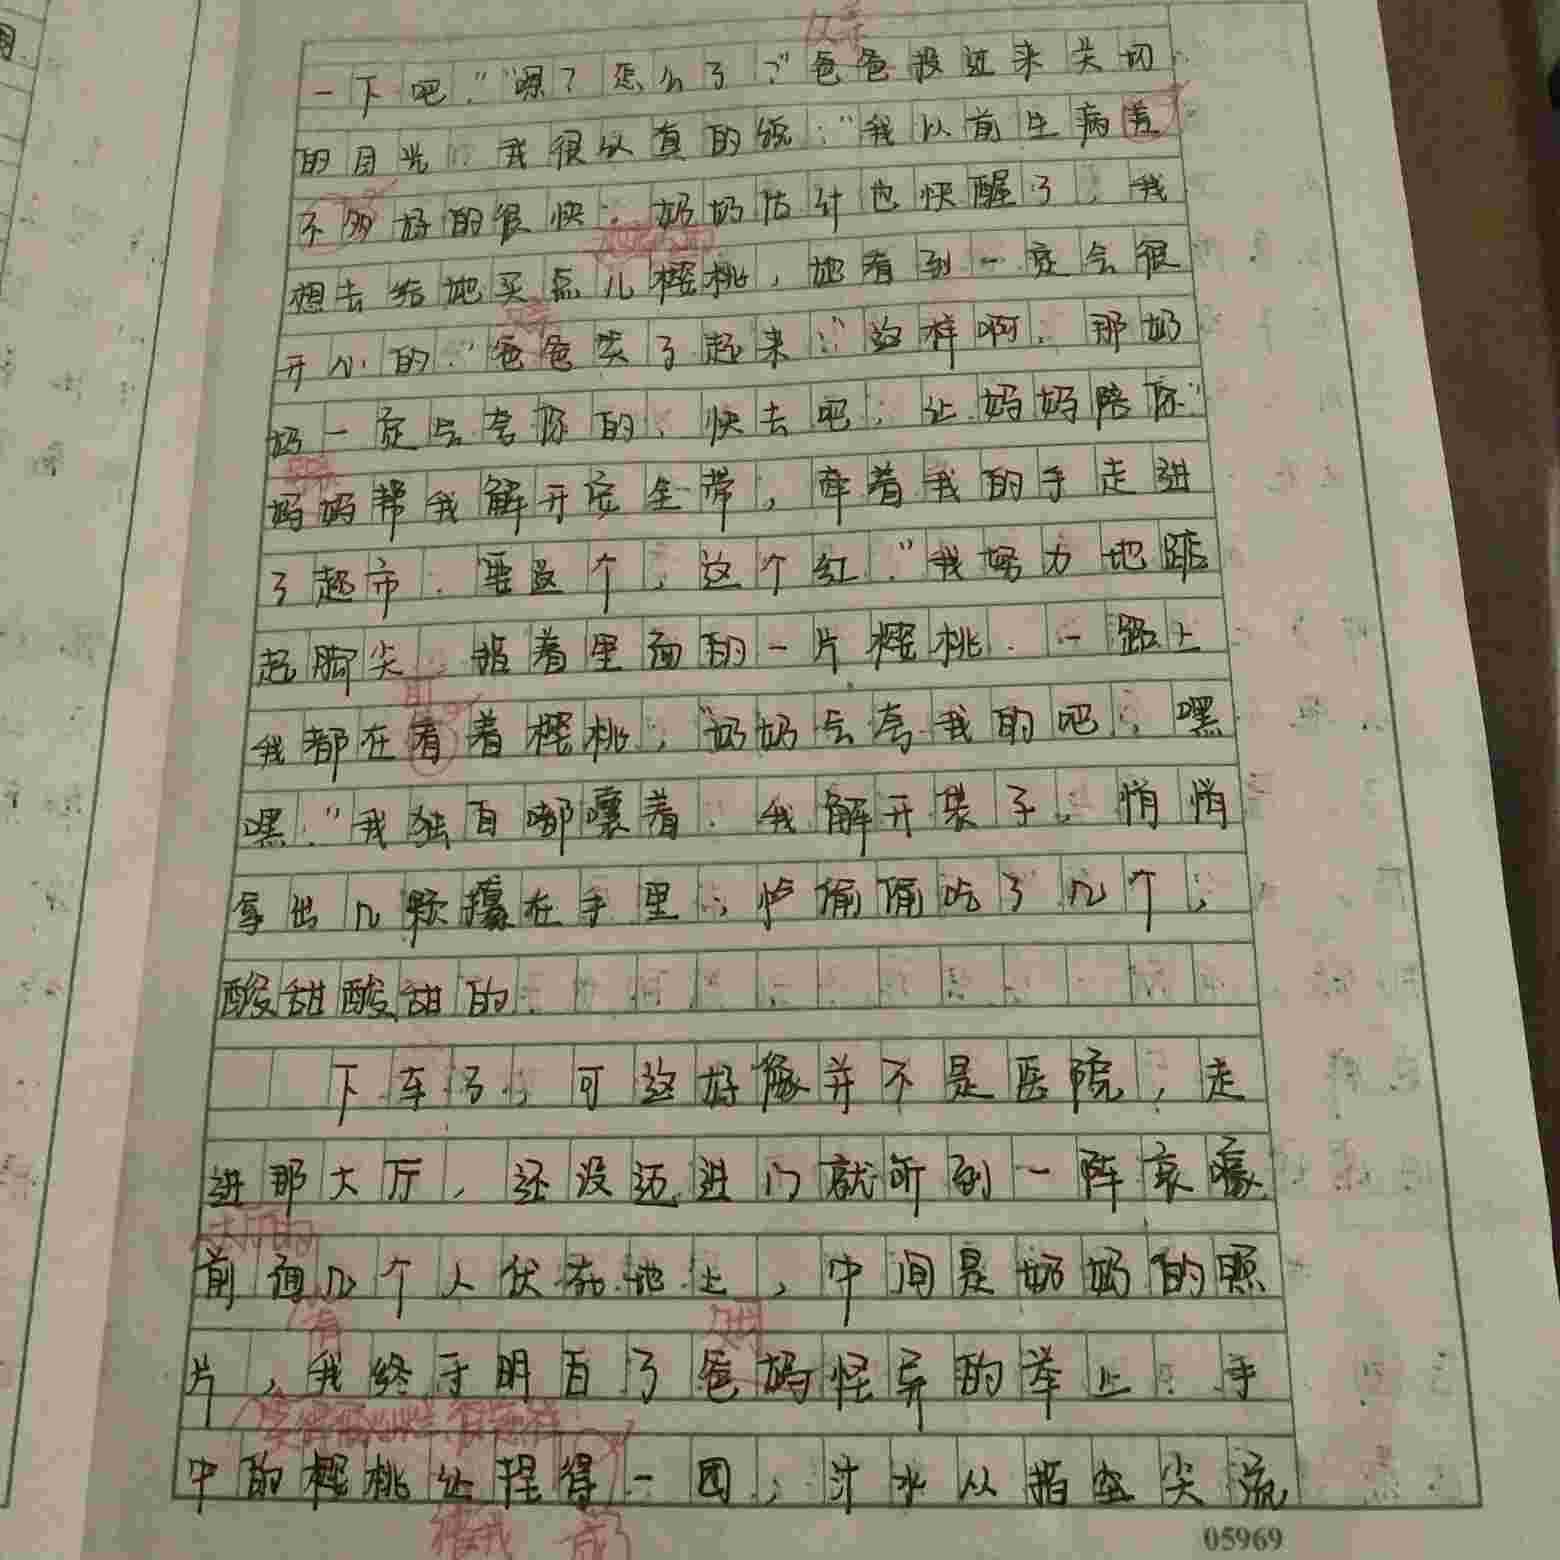 父亲
一下吧。”“嗯?怎么了?”爸爸投过来关切
的目光。我很认真的说:“我以前生病差
不多好的很快,奶奶估计也快醒了,我
想去给她买点儿樱桃,她看到一定会很
开心的。”爸爸笑了起来:“这样啊,那奶
奶一定会夸你的,快去吧,让妈妈陪你”
妈妈帮我解开安全带,牵着我的手走进
了超市。要这个,这个红。”我努力地踮
起脚尖,指着里面的一片樱桃。一路上
我都在看着樱桃,“奶奶会夸我的吧,嘿
嘿。”我独自嘟囔着。我解开袋子,悄悄
拿出几颗攥在手里,偷偷吃了几个,
酸甜酸甜的。
下车了,可这好像并不是医院,走
进那大厅,还没迈进门就听到一阵哀嚎
前面几个人伏在地上,中间是奶奶的照
片,我终于明白了爸妈怪异的举止。手
中的樱桃处捏得一团,汁水从指尖流
被我 成了
05969